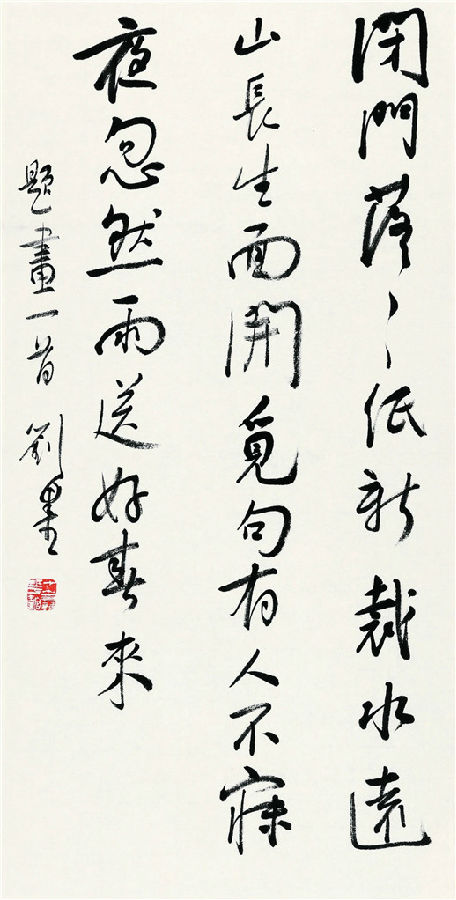 閑門落〻紙新裁水遠
山長生面開覓句有人不寐
夜忽然雨送好春來
題畫一首 劉墨